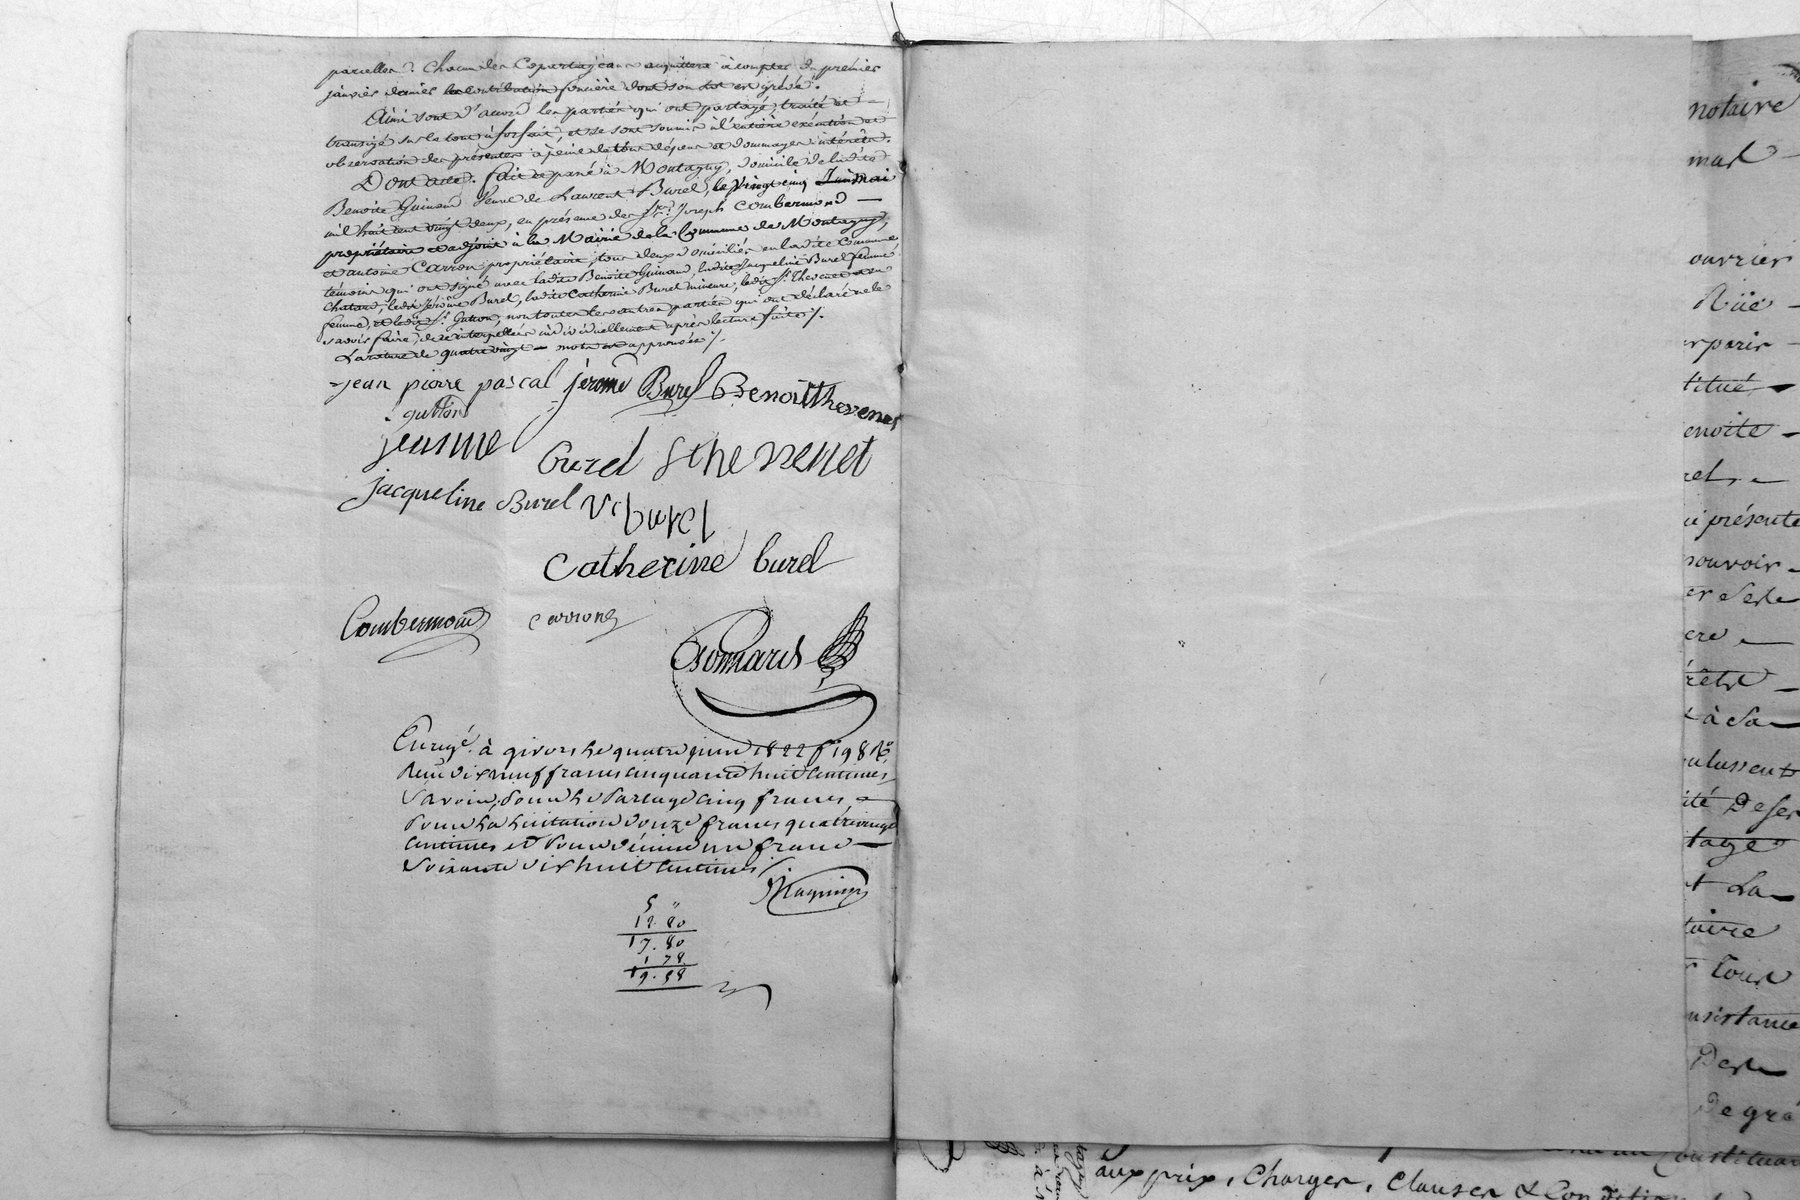 parcelles. Chacun des Copartageans acquittera à compter du premier
janvier dernier la contribution foncière dont son lot est grévé.
Ainsi sont d'accord les parties qui ont partagé, traité et
transigé sur le tout à forfait, et se sont soumis à l'entière exécution et
observation des présentes à peine de tous dépens et dommages intérêts.
Dont acte. fait et passé à Montagny, domicile de ladite
Benoite Guinand Veuve de Laurent Burel, le vingt cinq mai
mil huit cent vingt deux, en présence des Srs. Joseph Combermond
propriétaire et adjoint à la Mairie de la Commune de Montagny,
et antoine Carron propriétaire, tous deux domiciliés en ladite Commune
témoins qui ont signé avec ladite Benoite Guinand, ladite Jacqueline Burel femme
Chatard, ledit jérôme Burel, ladite Catherine Burel mineure, ledit Sr. Thevenet et sa
femme, et ledit Sr. Gutton, non toutes les autres parties qui ont déclaré ne le
savoir faire, de ce interpellées individuellement après lecture faite ./.
La rature de quatre vingt mots est approuvée ./.
jean pierre pascal jérome Burel Benoit thevenet
gutton
jeanne Burel f thevenet
jacqueline Burel Ve burel
Catherine burel
Combermond carron
Enregé. à givors le quatre juin 1822 fo 198 Ro.
Reçu dix neuf francs cinquante huit centimes,
Savoir, Pour le Partage cinq francs,
Pour la licitation douze francs quatrevingt
centimes et Pour décime un franc
Soixante dix huit centimes ./.
5 "
12.80
17.80
1 78
19.58
notaire
ouvrier
Rüe
titué
enoite
présente
pouvoir
ere
à Sa
oulussent
ité De ses
tage
La
taire
Tout
nsistance
De gré
aux prix, Charges, Clauses & Condition